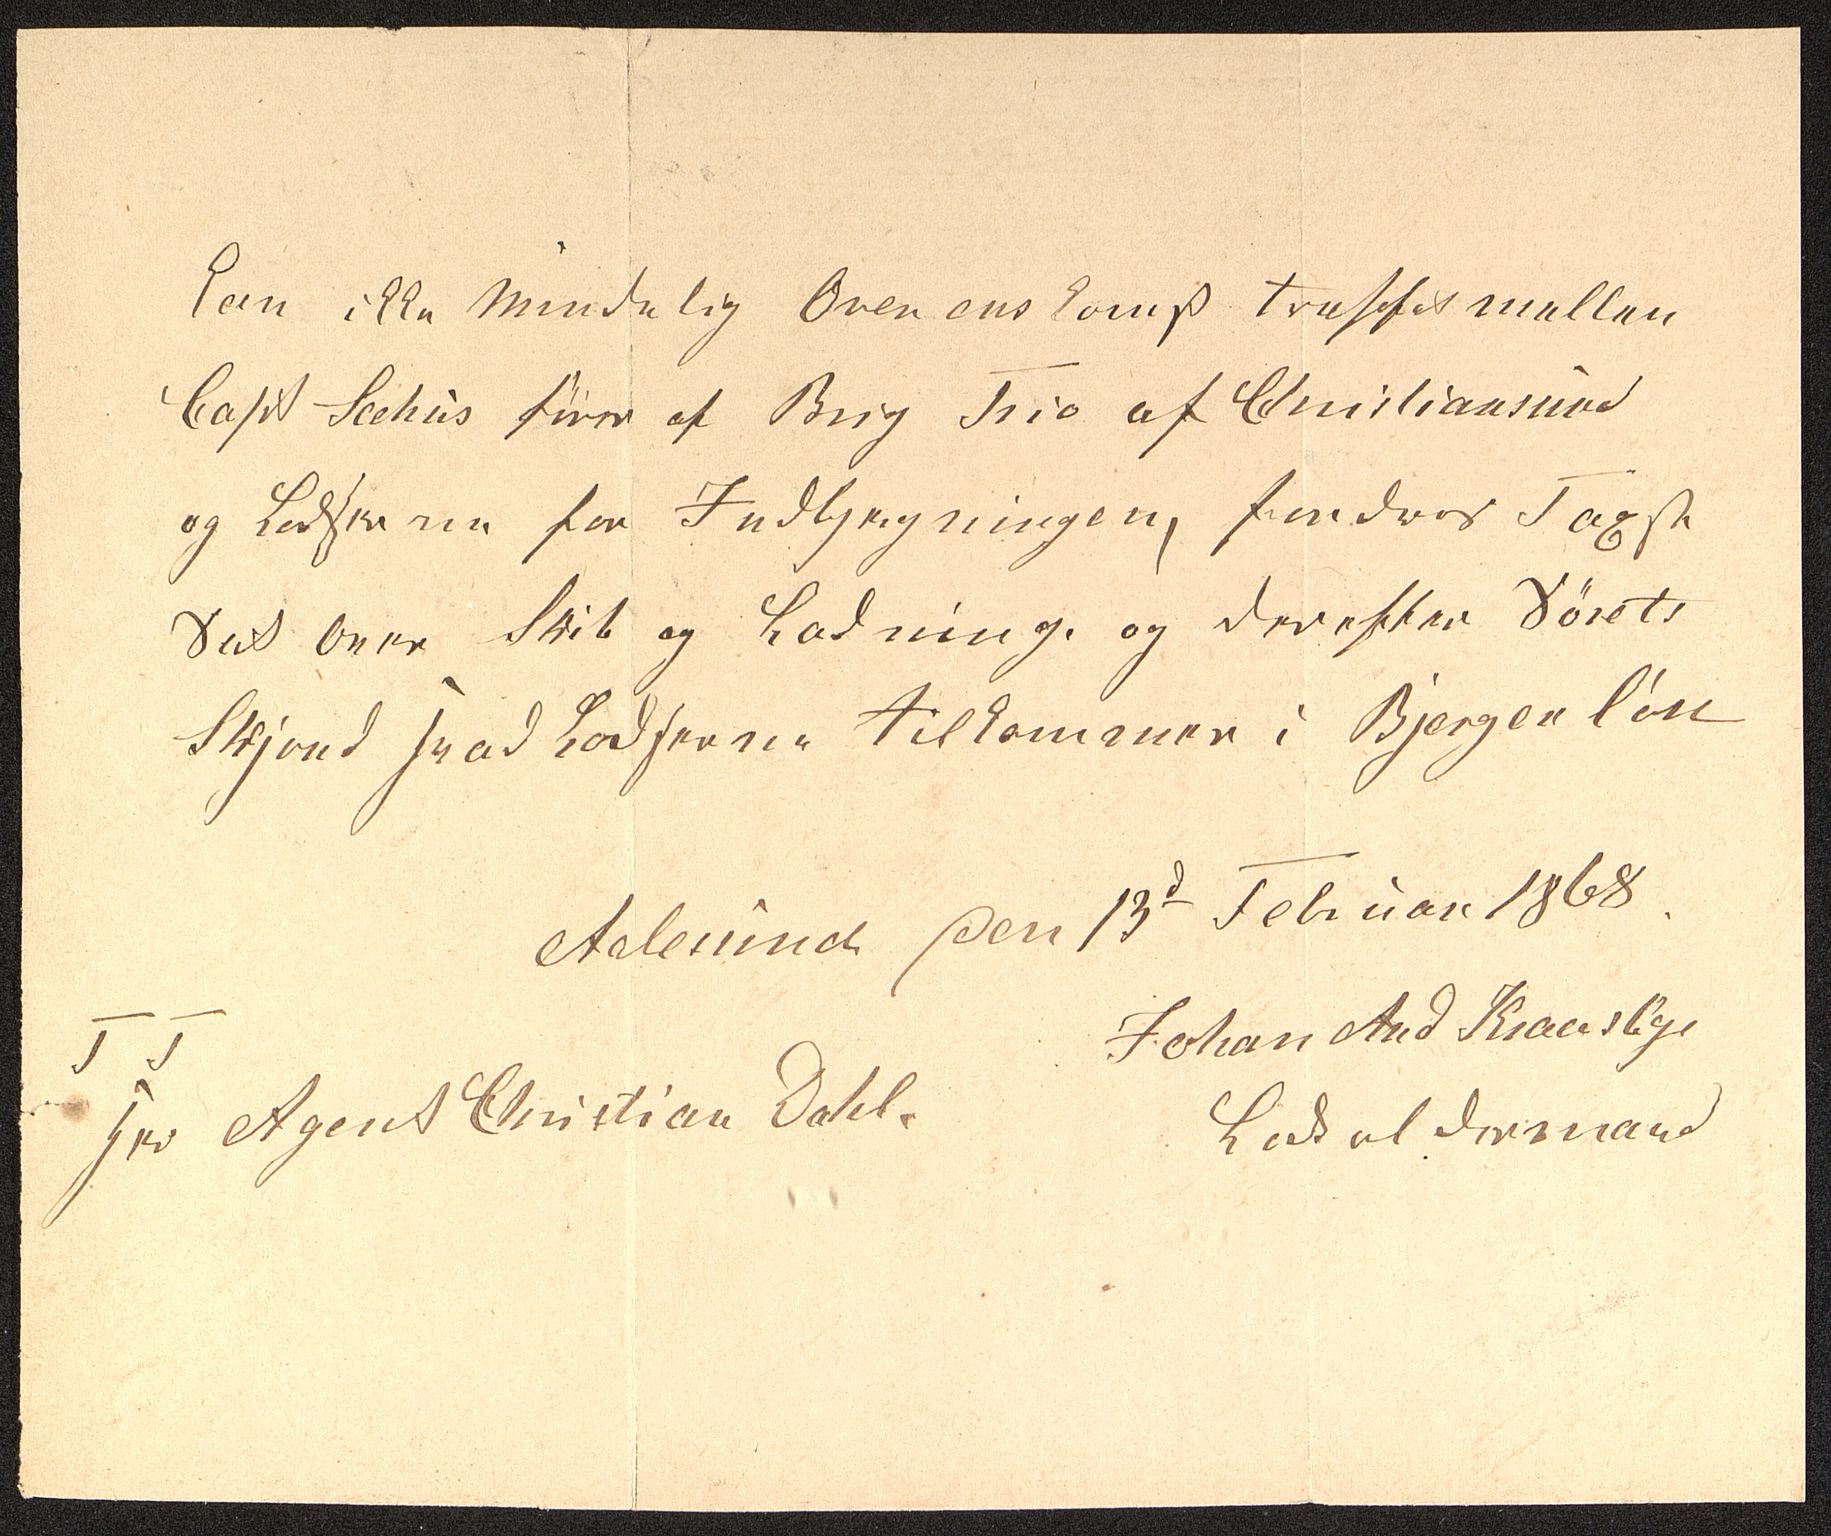 kan ikke Mindelig Overenskomst treffes mellem
Capt Seehus förer af Brig Trio af Christiansund
og Lodserne for Indbjergningen, fordres Taxst
Sat over Skib og Ladning. og derefter Sörets
Skjønd hvad Lodserne tilkommer i Bjergerlön
Aalesund den 13d Februar 1868.
T T
Johan And
Hr Agent Christian Dahl.
Lodsoldermand